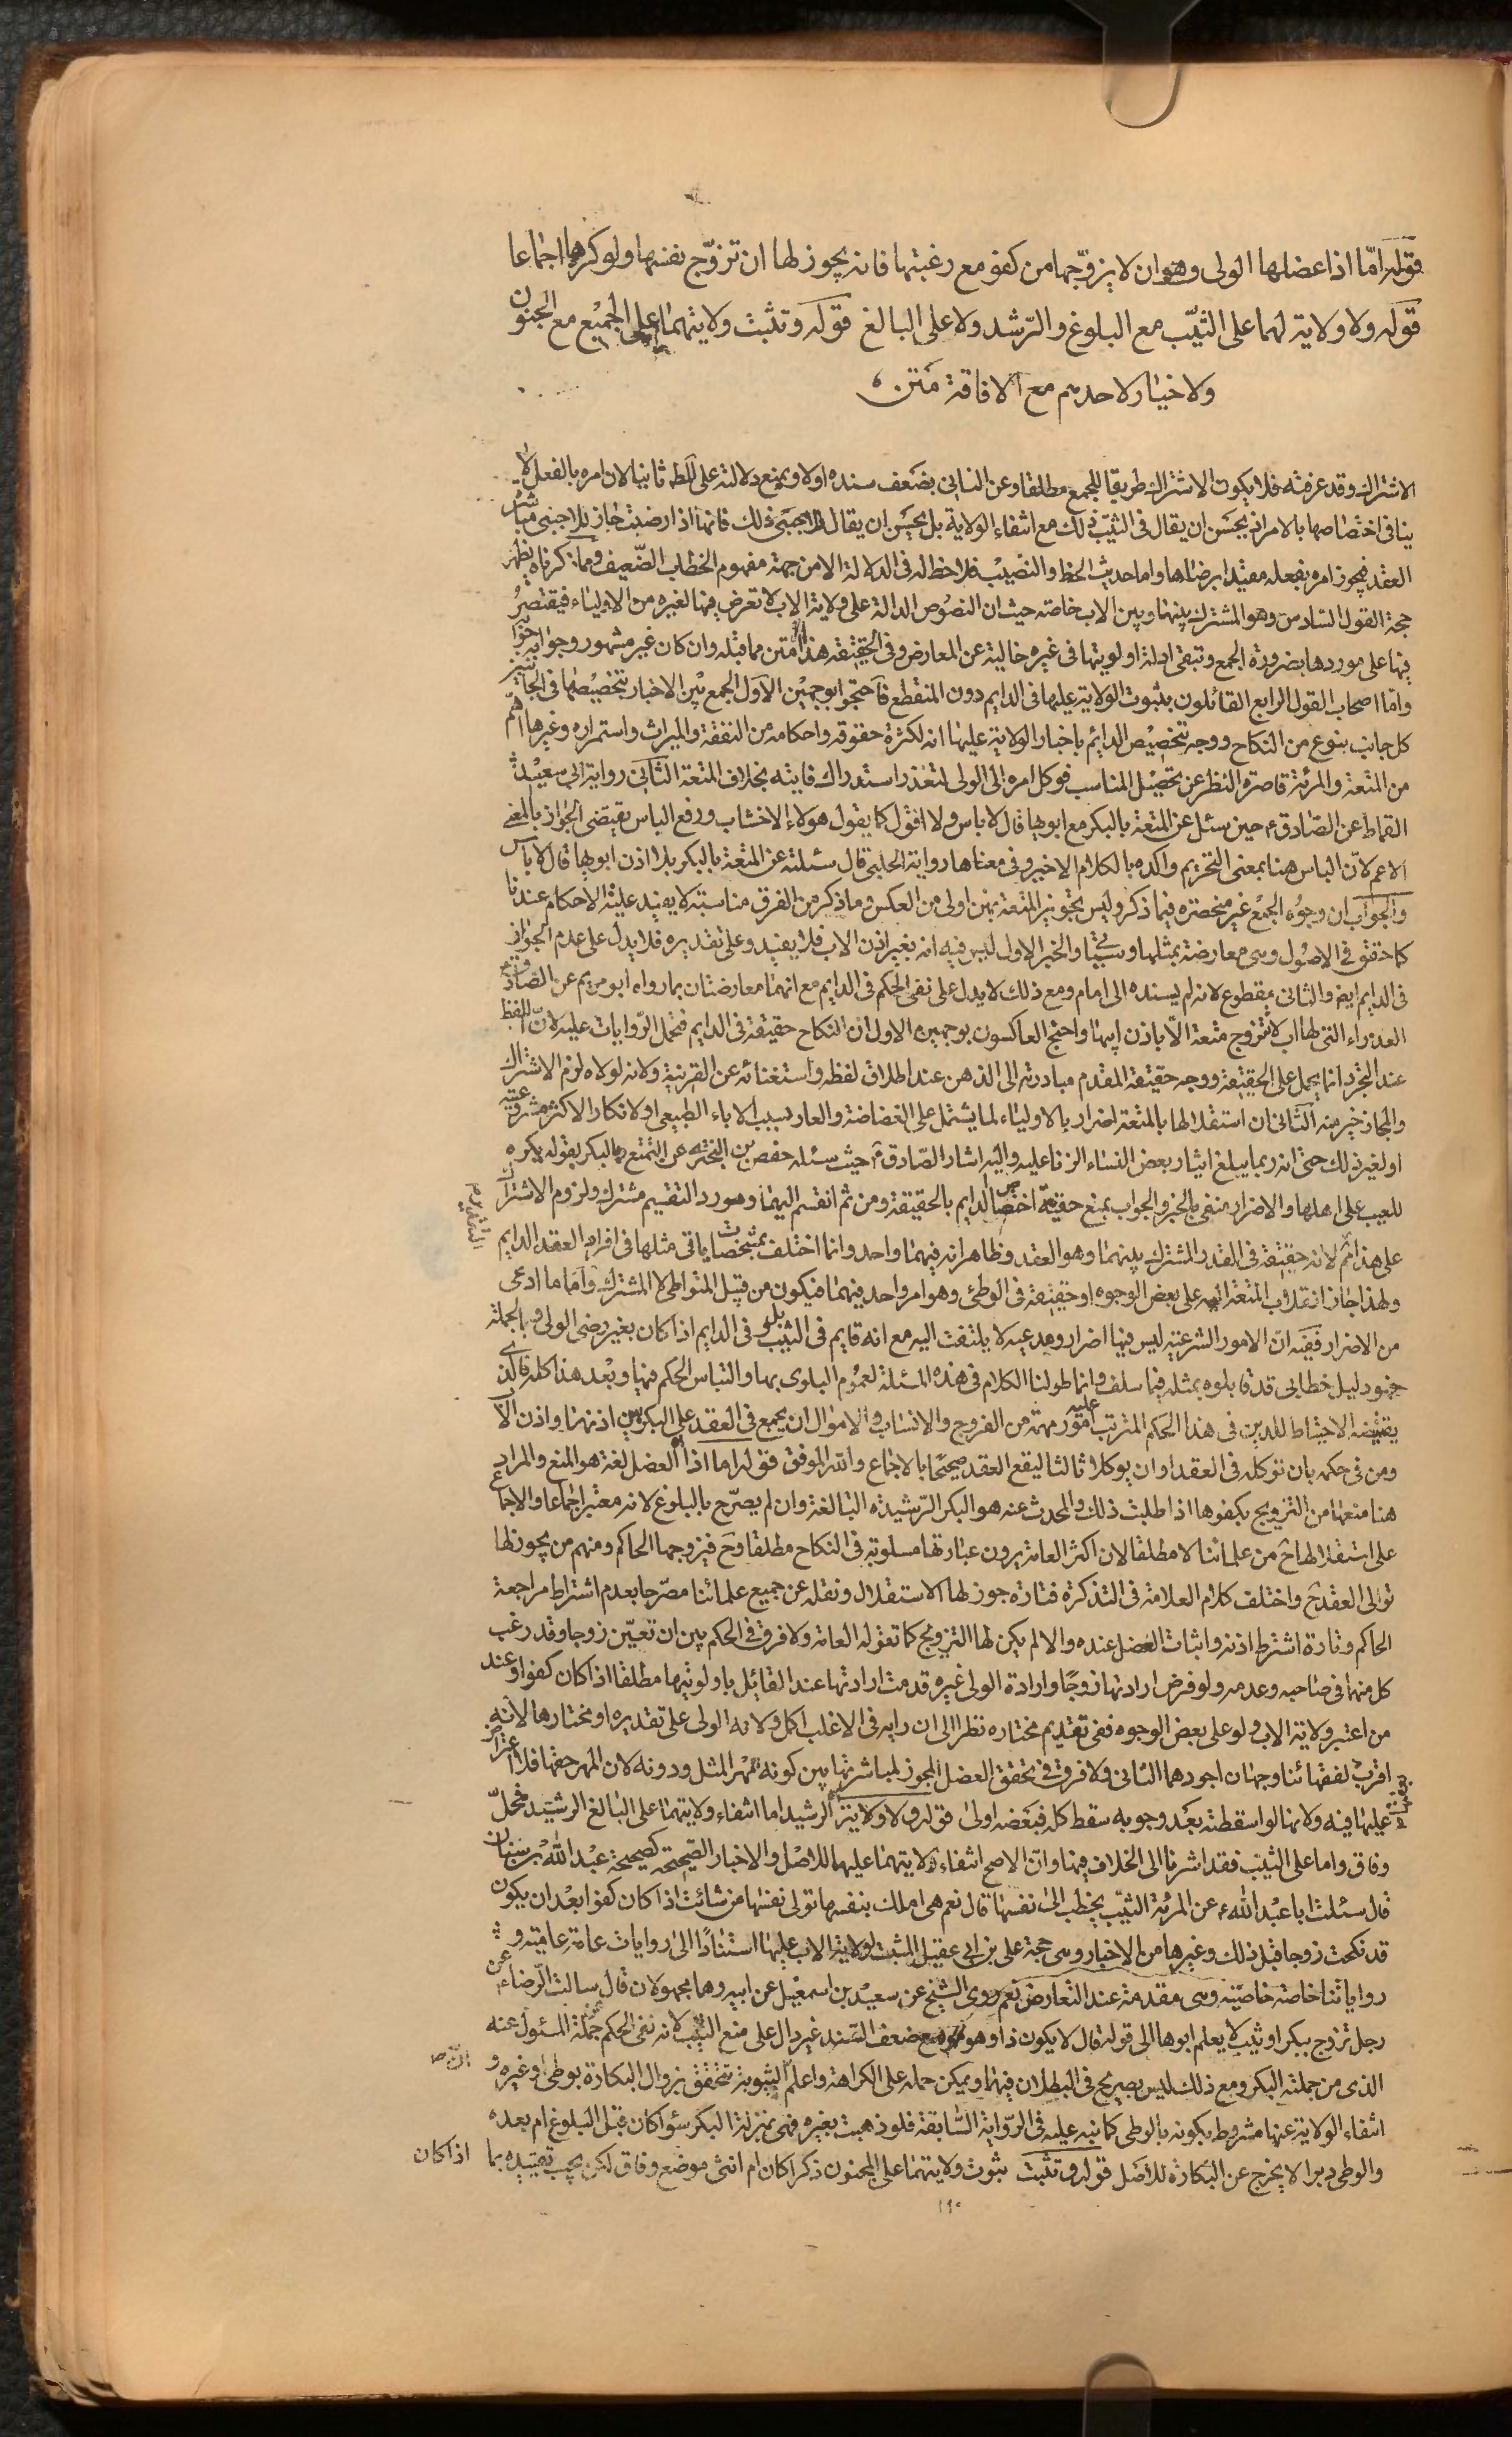 قوله امّا اذا عضلها الولى وهو ان لا يزوّجها من كفو مع رغبتها فانه يجوز لها ان تزوّج نفسها ولو كرها اجماعا
قوله ولا ولاية لهما على الثيّب مع البلوغ والرّشد ولا على البالغ قوله وتثبت ولايتهما على الجميع مع الجنون
ولا خيار لاحدهم مع الافاقة متن
الاشتراك وقد عرفته فلا يكون الاشتراك طريقا للجمع مطلقا وعن الثانى بضعف سنده اولا وبمنع دلالته على المط ثانيا لان امره بالفعل لا
ينافى اختصاصها بالامر انه يحسن ان يقال فى الثيّب ذلك مع انتفاء الولاية بل يحسن ان يقال للاجنبى ذلك فانها اذا رضيت جاز للاجنبى مباشرة
العقد فيجوز امره بفعله مقيدا برضاها واما حديث الحظ والنصيب فلا حظ له فى الدلالة الا من جهة مفهوم الخطاب الضّعيف ومما ذكرناه يظهر
حجة القول السّادس وهو المشترك بينها وبين الاب خاصة حيث ان النصوص الدالة على ولاية الاب لا تعرض فيها لغيره من الاولياء فيقتصر
فيها على موردها بضرورة الجمع وتبقى ادلة اولويتها فى غيره خالية عن المعارض وفى الحقيقة هذا امتن مما قبله وان كان غير مشهور وجوابه
وامّا اصحاب القول الرابع القائلون بثبوت الولاية عليها فى الدايم دون المنقطع فاحتجوا بوجهين الاول الجمع بين الاخبار بتخصيصها فى
كل جانب بنوع من النكاح ووجه تخصيص الدايم باخبار الولاية عليها انه لكثرة حقوقه واحكامه من النفقة والميراث واستمراره وغيرها اهم
من المتعة والمرئة قاصرة النظر عن تحصيل المناسب فوكل امره الى الولى لتعذر استدراك فايته بخلاف المتعة الثانى رواية ابى سعيد
القماط عن الصّادق ع حين سئل عن المتعة بالبكر مع ابويها قال لا باس ولا اقول كما يقول هولاء الاقشاب ورفع الباس يقتضى الجواز بالمعنى
الاعم لانّ الباس هنا بمعنى التحريم واكده بالكلام الاخير وفى معناها رواية الحلبى قال سئلته عن المتعة بالبكر بلا اذن ابويها قال لا باس
والجواب ان وجوه الجمع غير منحصرة فيما ذكر وليس تجويز المتعة بهن اولى من العكس وما ذكر من الفرق مناسبة لا يفيد علية الاحكام عندنا
كما حقق فى الاصول وهى معارضة بمثلها والخبر الاول ليس فيه انه بغير اذن الاب فلا يفيد وعلى تقديره فلا يدل على عدم الجواز
فى الدايم ايض والثانى مقطوع لانه لم يسنده الى امام ومع ذلك لا يدل على نفى الحكم فى الدايم مع انهما معارضتان بما رواه ابو مريم عن الصّادق
العذراء التى لها اب لا تتزوج متعة الّا باذن ابيها واحتج العاكسون بوجهين الاول ان النكاح حقيقة فى الدايم فتحمل الرّوايات عليه لانّ اللفظ
عند التجرد انما يحمل على الحقيقة ووجه حقيقة المقدم مبادرته الى الذهن عند اطلاق لفظه واستغنائه عن القرينة ولانه لولاه لزم الاشتراك
والمجاز خير منه الثانى ان استقلالها بالمتعة اضرار بالاولياء لما يشتمل على الغضاضة والعار بسبب الاباء الطبيعى او لانكار الاكثر مشروعيته
او لغير ذلك حتى انه ربما يبلغ ايثار بعض النساء الزنا عليه واليه اشار الصّادق ع حيث سئله حفص بن البخترى عن التمتع بالبكر بقوله يكره
للعيب على اهلها والاضرار منفى بالخبر والجواب بمنع حقية اختصاص الدايم بالحقيقة ومن ثم انقسم اليهما ومورد التقسيم مشترك ولزوم الاشتراك
على هذا ثم لانه حقيقة فى القدر المشترك بينهما وهو العقد وظاهر انه فيهما واحد وانما اختلف بمشخصات ياتى مثلها فى افراد العقد الدايم
ولهذا جاز انقلاب المتعة اليه على بعض الوجوه او حقيقة فى الوطئ وهو امر واحد فيهما فيكون من قبيل المتواطى لا المشترك وامّا ما ادعى
من الاضرار ففيه انّ الامور الشرعيّة ليس فيها اضرار ومدعيه لا يلتفت اليه مع انه قايم فى الثيّب بل وفى الدايم اذا كان بغير رضى الولى وبالجملة
فهو دليل خطابى قد قابلوه بمثله فيما سلف وانما طولنا الكلام فى هذه المسئلة لعموم البلوى بها والتباس الحكم فيها وبعد هذا كله فالذى
يقتضيه الاحتياط للدين فى هذا الحكم المترتب عليه امور مهمة من الفروج والانساب والاموال ان يجمع فى العقد على البكر بين اذنها واذن الاب
ومن فى حكمه بان توكله فى العقد او ان يوكلا ثالثا ليقع العقد صحيحًا بالاجماع والله الموفق قوله اما اذا العضل لغة هو المنع والمراد
هنا منعها من التزويج بكفوها اذا طلبت ذلك والمحدث عنه هو البكر الرّشيدة البالغة وان لم يصرّح بالبلوغ لانه معتبر اجماعا والاجماع
على استقلالها ح من علمائنا لا مطلقا لان اكثر العامة يرون عبارتها مسلوبة فى النكاح مطلقا وح فيزوجها الحاكم ومنهم من يجوز لها
تولى العقد ح واختلف كلام العلامة فى التذكرة فتارة جوز لها الاستقلال ونقله عن جميع علمائنا مصرّحا بعدم اشتراط مراجعة
الحاكم وتارة اشترط اذنه واثبات العضل عنده والا لم يكن لها التزويج كما تقوله العامة ولا فرق فى الحكم بين ان تعيّن زوجا وقد رغب
كل منهما فى صاحبه وعدمه ولو فرض ارادتها زوجًا وارادة الولى غيره قدمت ارادتها عند القايل باولويتها مطلقا اذا كان كفوا وعند
من اعتبر ولاية الاب ولو على بعض الوجوه ففى تقديم مختاره نظرا الى ان رايه فى الاغلب اكمل ولانه الولى على تقديره او مختارها لانه
اقرب لعفتها وجهان اجودهما الثانى ولا فرق فى تحقق العضل المجوز لمباشرتها بين كونه بمهر المثل ودونه لان المهر حقها فلا اعتراض
عليها فيه ولانها لو اسقطته بعد وجوبه سقط كله فبعضه اولى قوله ولا ولاية الرشيد اما انتفاء ولايتهما على البالغ الرشيد فمحلّ
وفاق واما على الثيّب فقد اشرنا الى الخلاف فيها وانّ الاصح انتفاء ولايتهما عليها للاصل والاخبار الصّحيحة كصحيحة عبد الله بن سنان
قال سئلت ابا عبد الله ع عن المرئة الثيّب يخطب الى نفسها قال نعم هى املك بنفسها تولى نفسها من شائت اذا كان كفوا بعد ان يكون
قد نكحت زوجا قبل ذلك وغيرها من الاخبار وهى حجة على بن ابى عقيل المثبت لولاية الاب عليها استنادًا الى روايات عامة عامّية و
رواياتنا خاصة خاصّية وهى مقدمة عند التعارض نعم روى الشيخ عن سعيد بن اسمعيل عن ابيه وهما مجهولان قال سالت الرّضا ع عن
رجل تزوج ببكر او ثيب لا يعلم ابوها الى قوله قال لا يكون ذا وهو مع ضعف السّند غير دال على منع الثيب لانه نفى الحكم عن جملة المسئول عنه
الذى من جملته البكر ومع ذلك ليس بصريح فى البطلان فيهما ويمكن حمله على الكراهة واعلم ان الثيوبة تتحقق بزوال البكارة بوطى وغيره و
انتفاء الولاية عنها مشروط بكونه بالوطى كما نبه عليه فى الرّواية السّابقة فلو ذهبت بغيره فهى بمنزلة البكر سوا كان قبل البلوغ ام بعده
والوطى دبرا لا يخرج عن البكارة للاصل قوله وتثبت ثبوت ولايتهما على المجنون ذكرا كان ام انثى موضع وفاق لكن يجب تقييده بما اذا كان
١٩٠